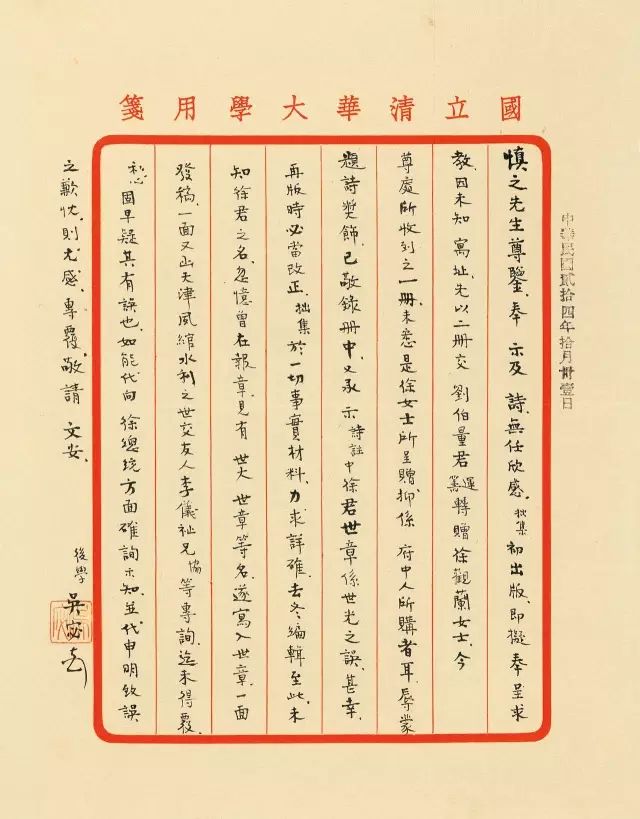 國立清華大學用箋
中華民國貳拾四年拾月卅壹日
慎之先生尊鑒。奉 示及 詩、無任欣感。拙集初出版、即擬奉呈求
教。因未知 寓址、先以二冊交 劉伯量君運籌轉贈徐觀蘭女士。今
尊處所收到之一冊、未悉是徐女士所呈贈、抑係 府中人所購者耳。辱蒙
題詩獎飾、已敬錄冊中。又承 示詩註中徐君世章係世光之誤、甚幸。
再版時必當改正。拙集於一切事實材料、力求詳確。去冬編輯至此、未
知徐君之名。忽憶曾在報章見有 世大 世章等名、遂寫入世章。一面
發稿、一面又函天津風綰水利之世交友人李儀祉兄協等專詢、迄未得覆。
私心固早疑其有誤也。如能代向 徐總統方面確詢示知、並代申明致誤
之歉忱、則尤感。專覆、敬請 文安。
後學 吳宓